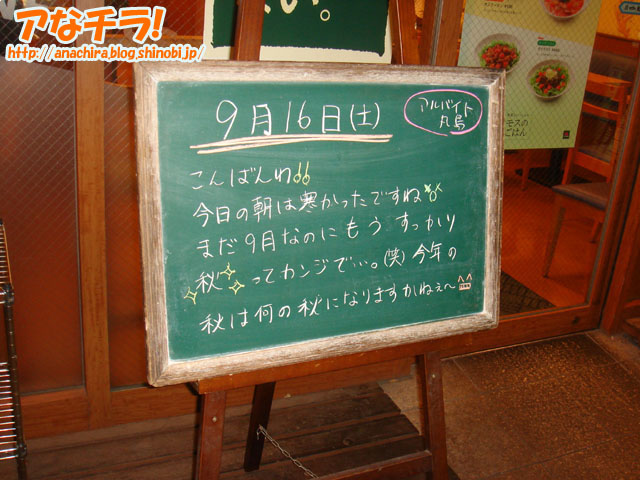 アなチラ!
http://anachira.blog.shinobi.jp/
い。
9月16日(土)
アルバイト
丸島
こんばんわ!!
今日の朝は寒かったですね
まだ9月なのにもうすっかり
秋ってカンジで…。(笑)今年の
秋は何の秋になりますかねぇ～
モスの
ごはん